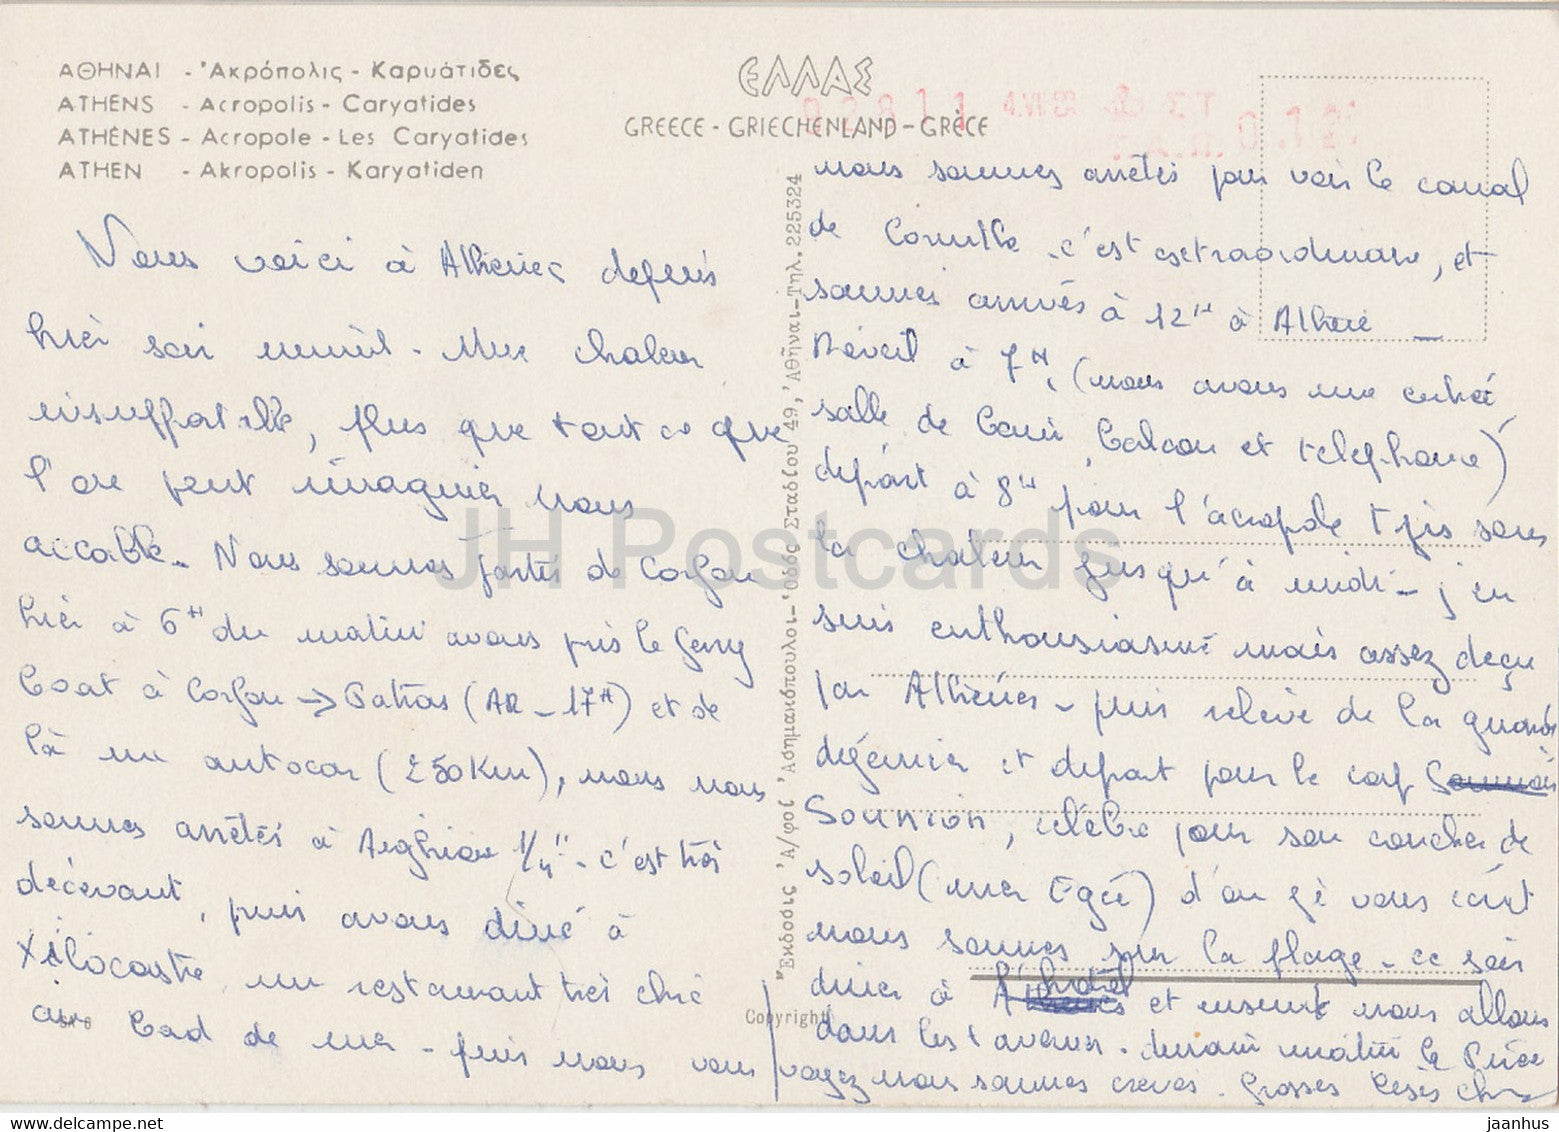 ΑΘΗΝΑΙ - Ἀκρόπολις - Καρυάτιδες
ATHENS - Acropolis - Caryatides
ATHÈNES - Acropole - Les Caryatides
ATHEN - Akropolis - Karyatiden
ΕΛΛΑΣ
GREECE - GRIECHENLAND - GRÈCE
02811
Nous voici à Athènes depuis
hier soir minuit - Une chaleur
insupportable, plus que tout ce que
l'on peut imaginer nous
accable. Nous sommes partis de Corfou
hier à 6H du matin avons pris le ferry
boat à Corfou → Patras (AR - 17H) et de
là un autocar (250Km), nous nous
sommes arrêtés à 1/4H - c'est très
décevant, puis avons dîné à
Xilocastre un restaurant très chic
au bord de mer - puis nous nous
Ἔκδοσις Ἀ/φοί Ἀσημακόπουλοι - Ὁδός Σταδίου 49, Ἀθῆναι - Τηλ. 225324
Copyright
nous sommes arrêtés pour voir le canal
de Corinthe - c'est extraordinaire, et
sommes arrivés à 12H à Athène _
Réveil à 7H, (nous avons une entrée
salle de bain, balcon et telephone)
départ à 8H pour l'acropole sous
la chaleur jusqu'à midi - j'en
suis enthousiasmé mais assez déçu
par Athènes - puis relève de la
déjeuner et depart pour le cap
Sounion, célèbre pour son coucher de
soleil (mer Egée) d'où je vous écrit
nous sommes sur la plage - ce soir
diner à l'hotel et ensuite nous allons
dans les tavernes. demain matin le Pirée
voyez nous sommes crevés. Grosses bises
JH Postcards
www.delcampe.net
jaanhus